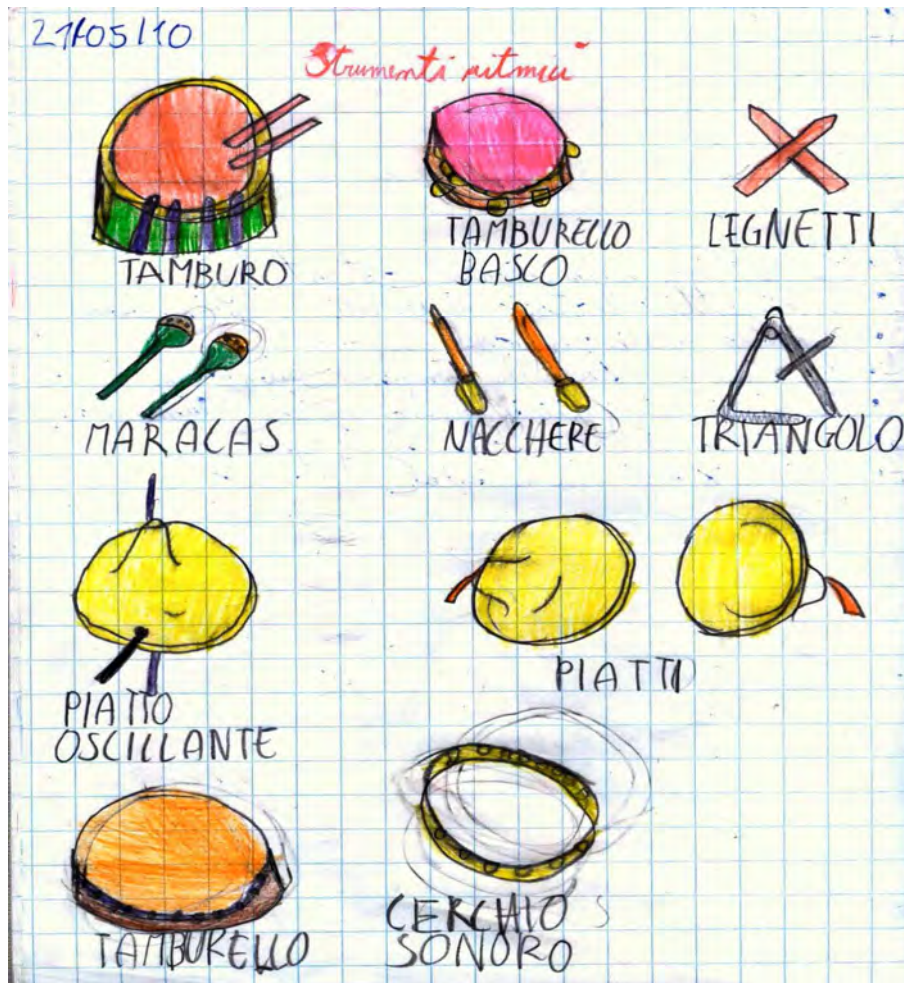 21/05/10
Strumenti ritmici
TAMBURO
TAMBURELLO
BASCO
LEGNETTI
MARACAS
NACCHERE
TRIANGOLO
PIATTO
OSCILLANTE
PIATTI
TAMBURELLO
CERCHIO
SONORO